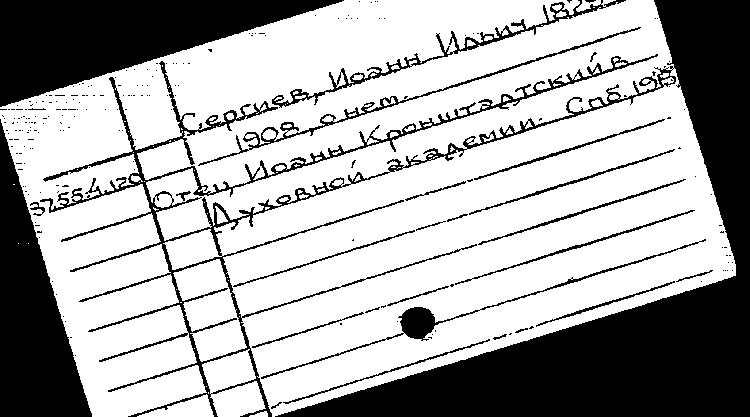 Сергиев, Иоанн Ильич, 182
1908, о нем.
Отец Иоанн Кронштадтский в
3755.4.120
Духовной академии. Спб,